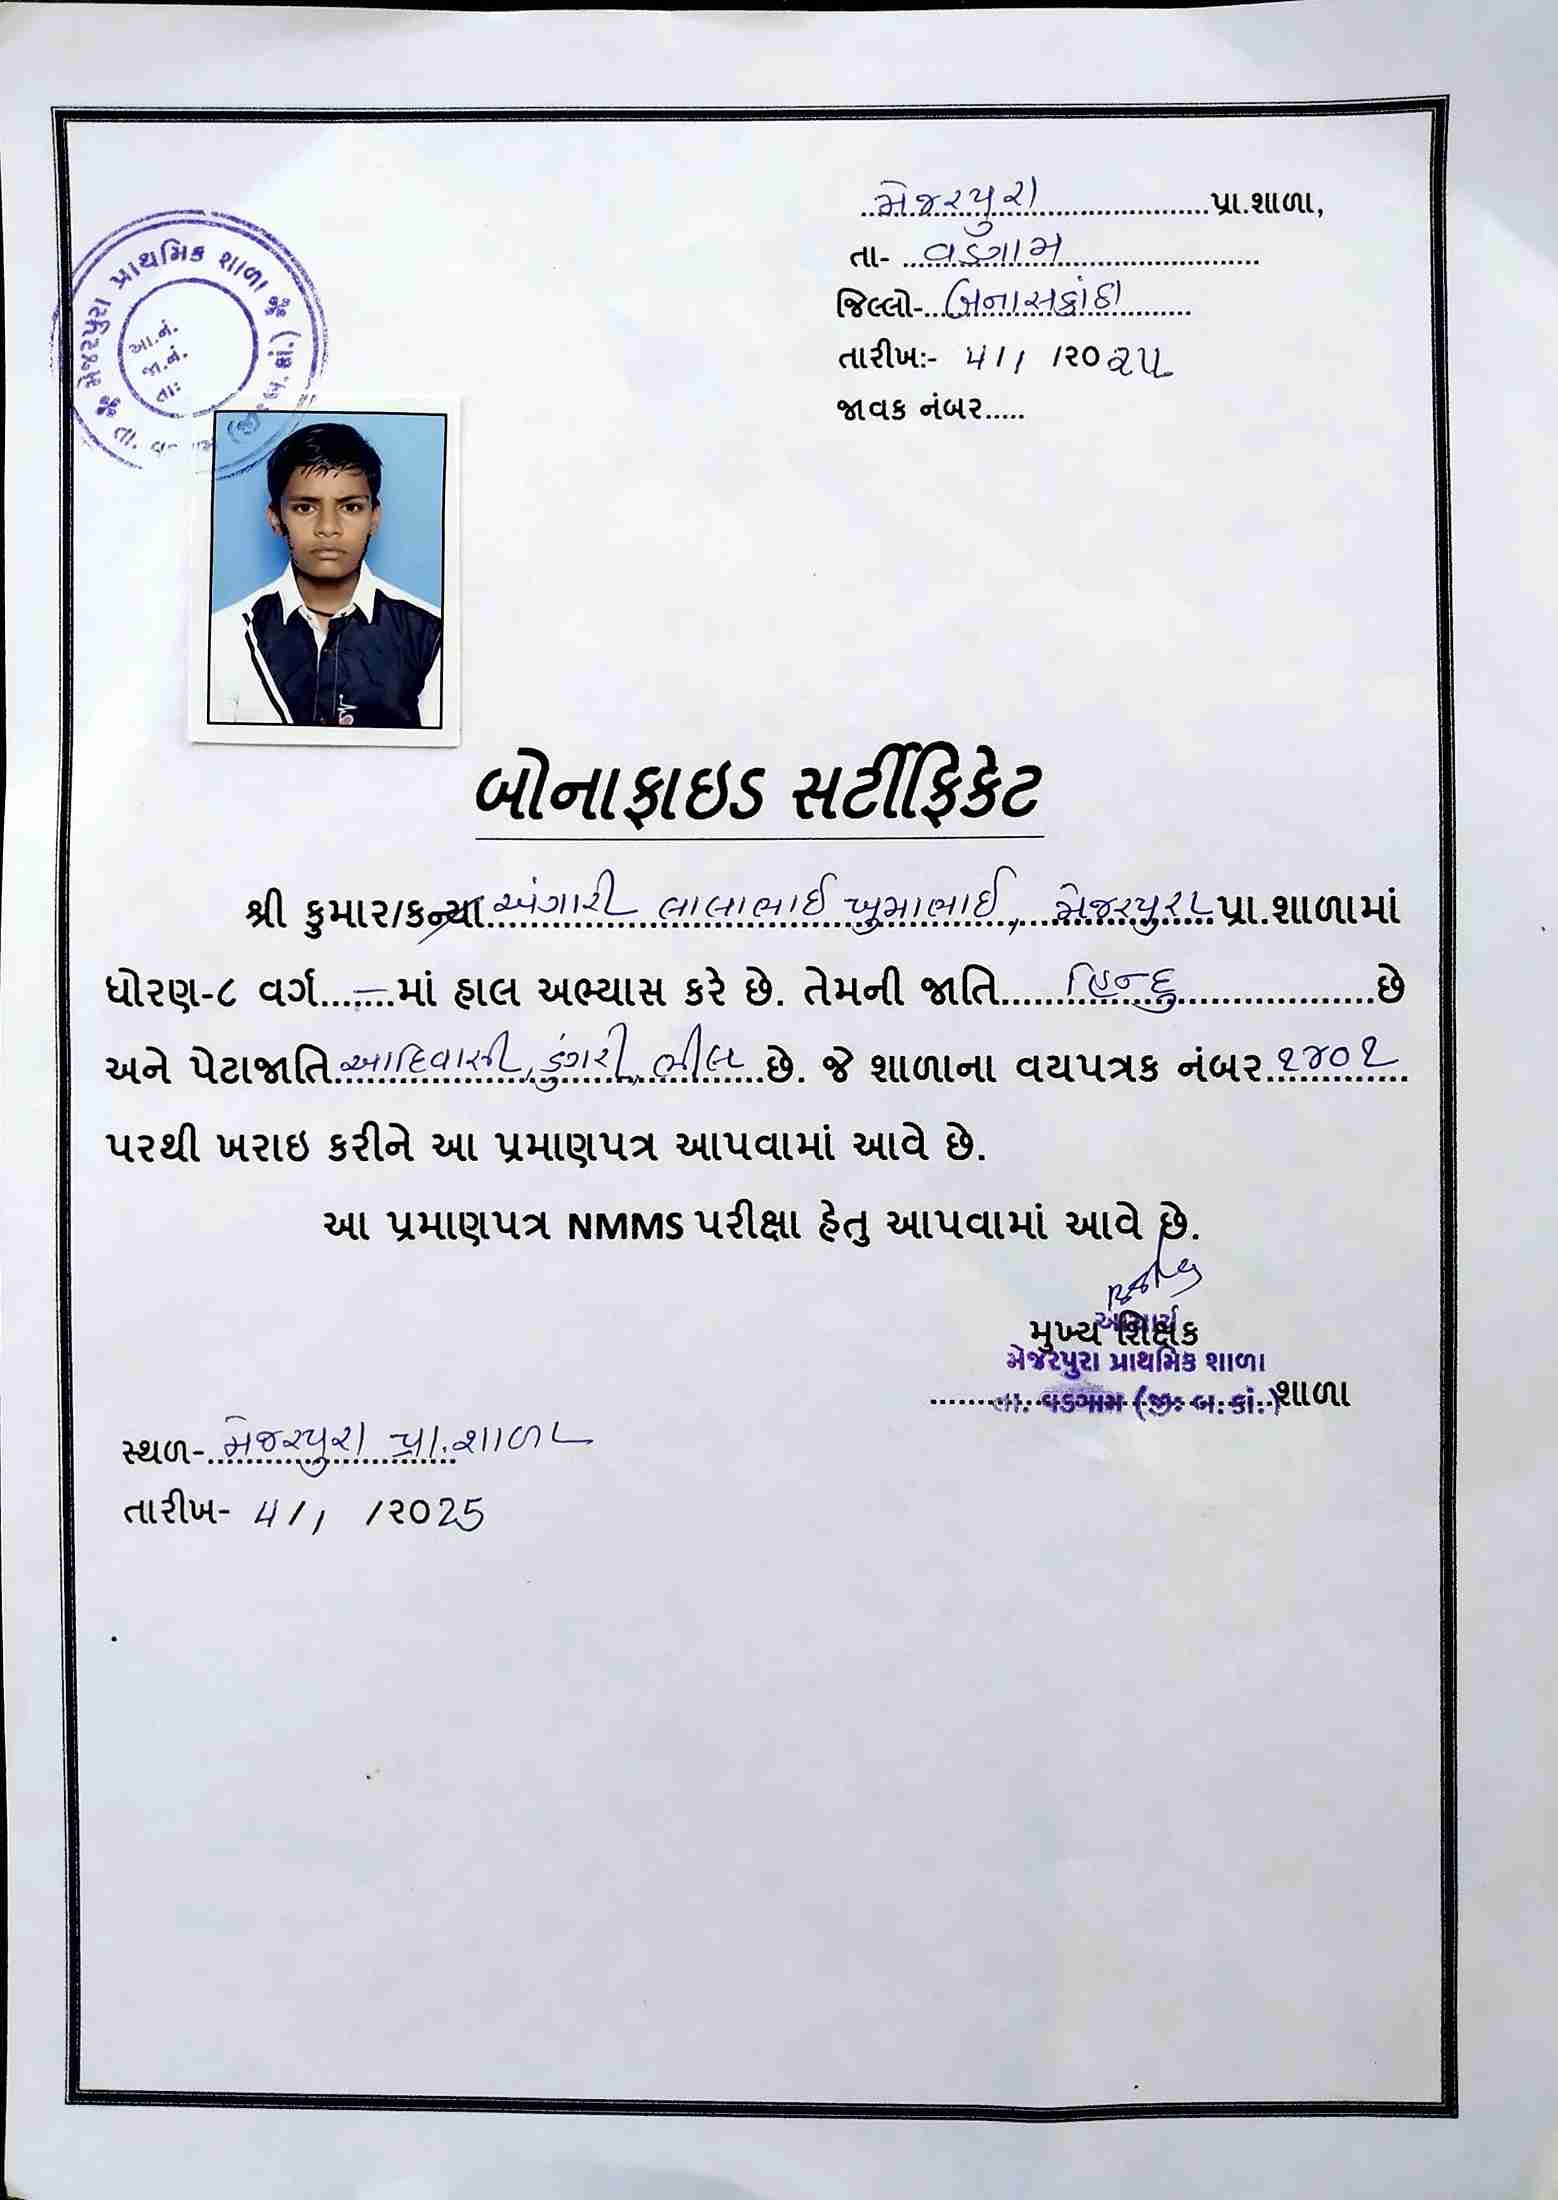 મેજરપુરા પ્રા.શાળા,
તા- વડગામ
જિલ્લો- બનાસકાંઠા
તારીખ:- ૪/૧ /૨૦૨૫
જાવક નંબર.....
મેજરપુરા પ્રાથમિક શાળા
આ.નં.
જા.નં.
તાઃ
બોનાફાઇડ સર્ટીફિકેટ
શ્રી કુમાર/કન્યા અંગારી લાલાભાઈ ખુમાભાઈ, મેજરપુરા પ્રા.શાળામાં
ધોરણ-૮ વર્ગ....-...માં હાલ અભ્યાસ કરે છે. તેમની જાતિ હિન્દુ છે
અને પેટાજાતિ આદિવાસી, ડુંગરી, ભીલ છે. જે શાળાના વયપત્રક નંબર ૧૪૦૧
પરથી ખરાઇ કરીને આ પ્રમાણપત્ર આપવામાં આવે છે.
આ પ્રમાણપત્ર NMMS પરીક્ષા હેતુ આપવામાં આવે છે.
આચાર્ય
મુખ્ય શિક્ષક
મેજરપુરા પ્રાથમિક શાળા
તા. વડગામ (જી: બ.કાં.) શાળા
સ્થળ- મેજરપુરા પ્રા.શાળા
તારીખ- 4/1 /૨૦25